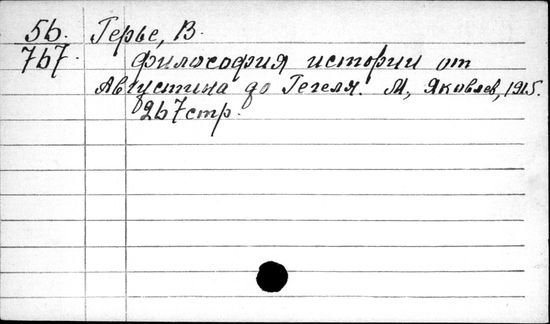 56. Герье, В.
767. Философия истории от
Августина до Гегеля. М., Яковлев, 1915.
267 стр.